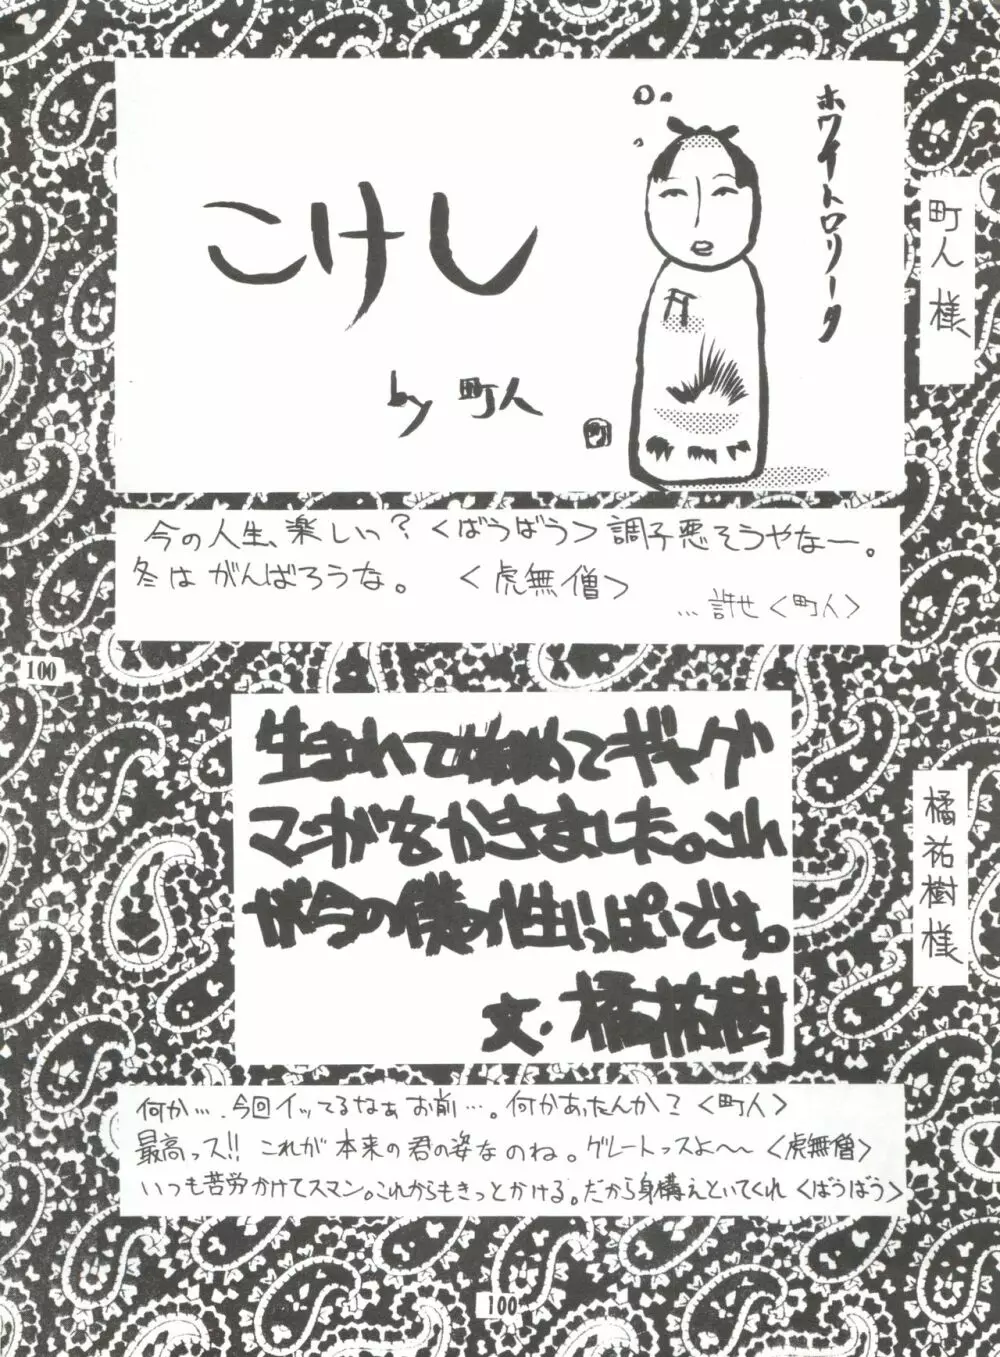 ホワイトロリータ
こけし
by 町人
町
町人様
今の人生、楽しいっ?<ばうばう>調子悪そうやなー。
冬はがんばろうな。 <虎無僧>
…許せ<町人>
100
生まれて始めてギャグ
マンガをかけました。どうも
本分の僕の性っぽいです。
文・橘祐樹
橘祐樹様
何か…、今回イッてるなぁお前…。何かあったんか?<町人>
最高っス!! これが本来の君の姿なのね。グレートっスよ〜〜<虎無僧>
いつも苦労かけてスマン。これからもきっとかける。だから身構えといてくれ<ばうばう>
100